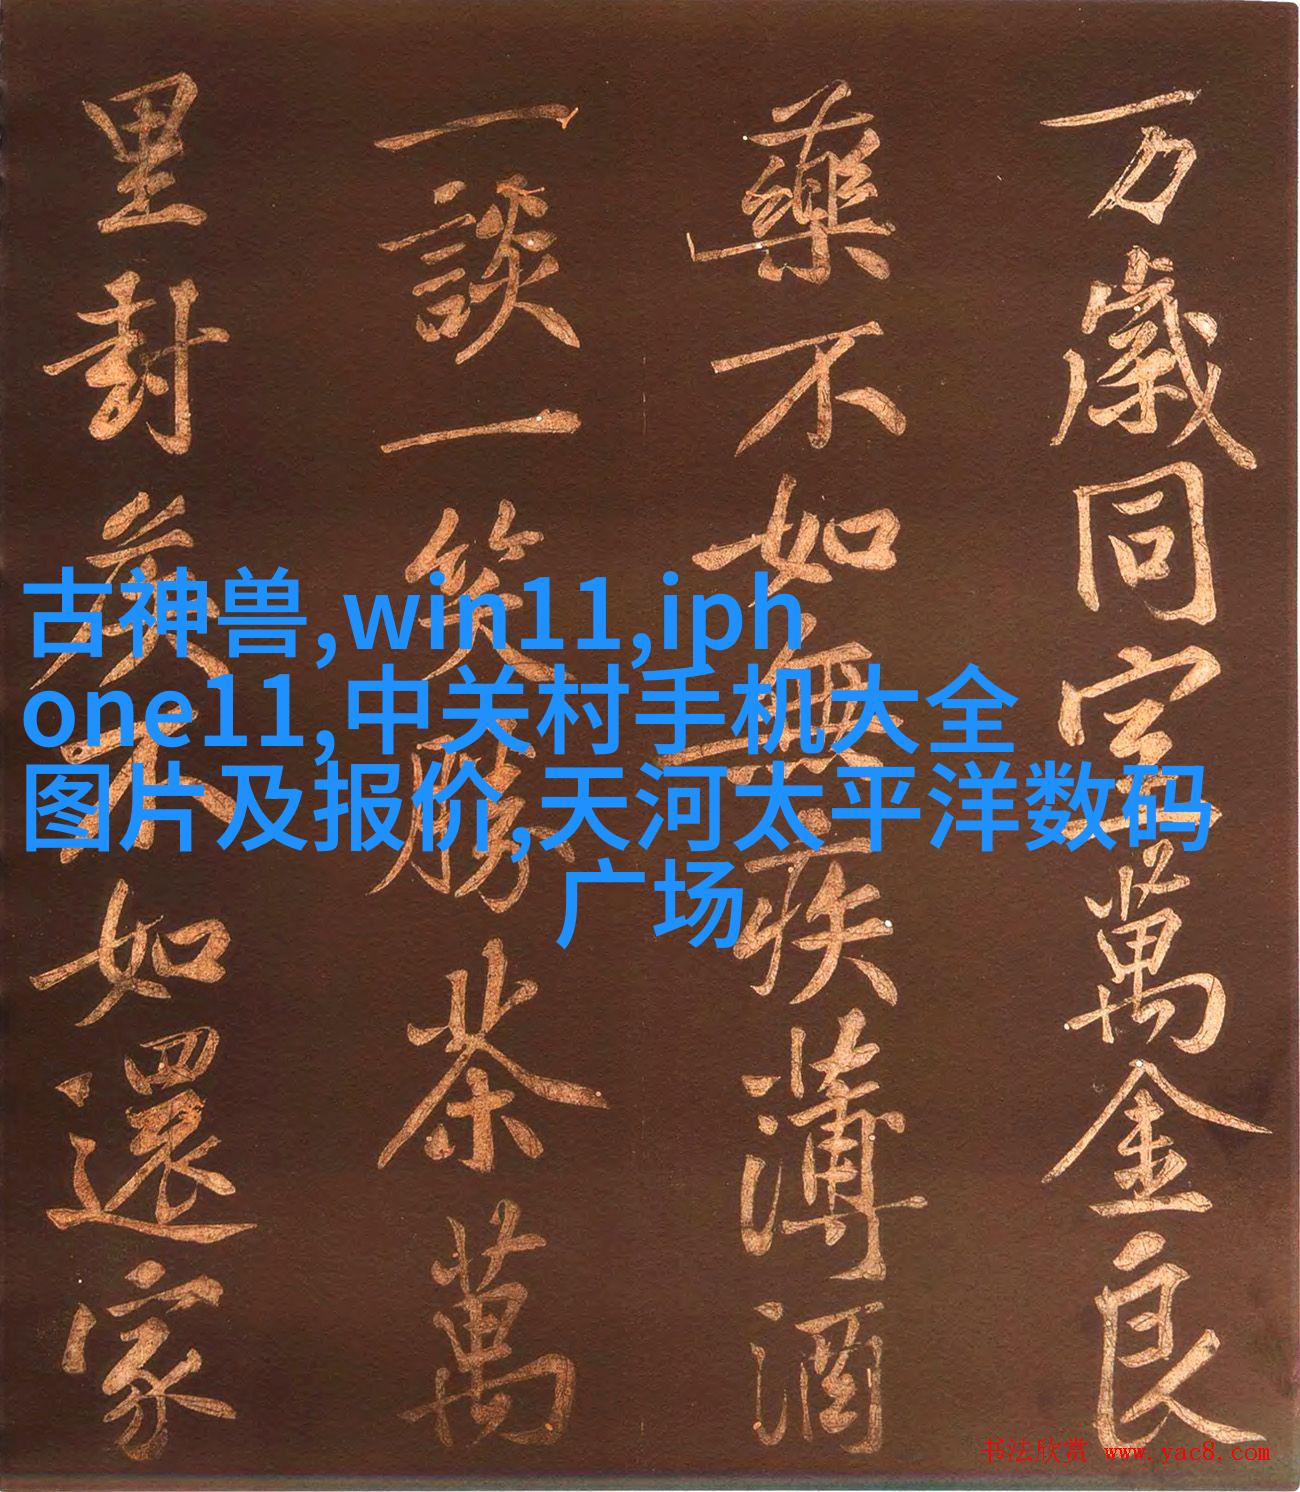 万歲同室萬金良
藥不如無疾薄酒
一談一笑勝茶萬
里封侯不如還家
古神兽,win11,iph
one11,中关村手机大全
图片及报价,天河太平洋数码
广场
书法欣赏 www.yac8.com